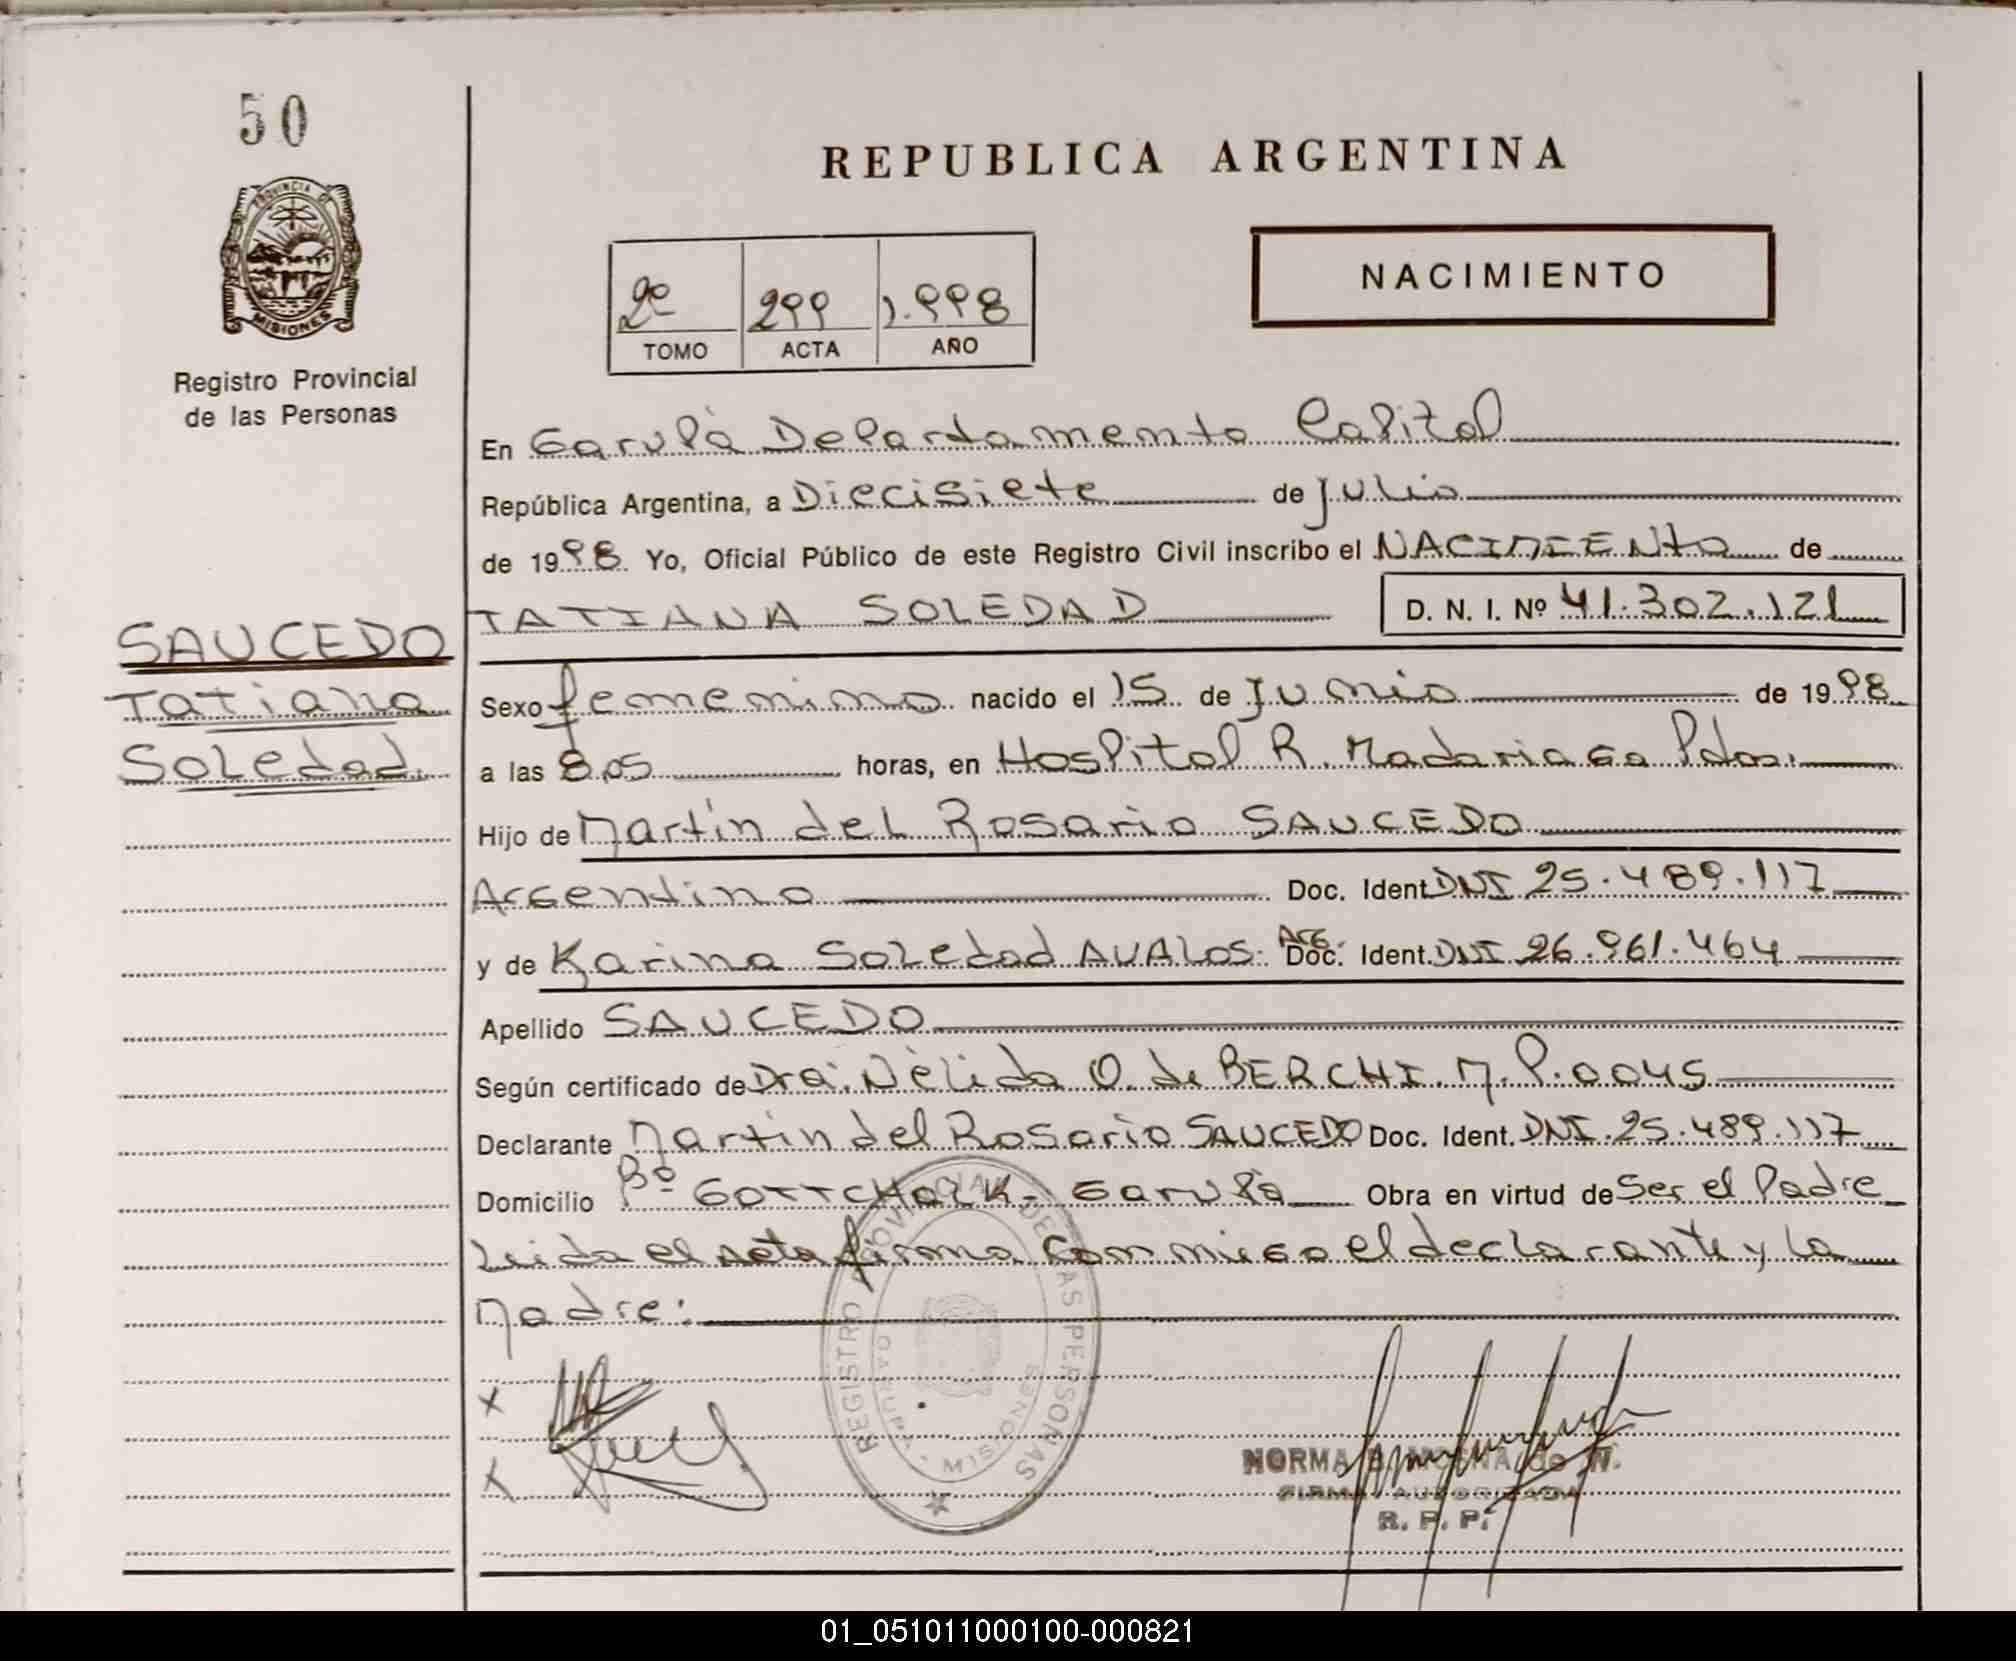 50
REPUBLICA ARGENTINA
PROVINCIA DE
MISIONES
Registro Provincial
de las Personas
2º 299 1.998
TOMO ACTA AÑO
NACIMIENTO
En Garupà Departamento Capital
República Argentina, a Diecisiete de Julio
de 1998 Yo, Oficial Público de este Registro Civil inscribo el NACIMIENTO de
TATIANA SOLEDAD D. N. I. Nº 41.302.121
SAUCEDO
Tatiana
Soledad.
Sexo femenino nacido el 15 de Junio de 1998
a las 8,05 horas, en Hospital R. Madariaga Pdas.
Hijo de Martín del Rosario SAUCEDO
Argentino Doc. Ident. DNI 25.489.117
y de Karina Soledad AVALOS. Arg. Doc. Ident. DNI 26.961.464
Apellido SAUCEDO
Según certificado de Dra. Nèlida O. de BERCHI. M.P.0045
Declarante Martin del Rosario SAUCEDO Doc. Ident. DNI.25.489.117
Domicilio Bº GOTTCHALK - Garupà Obra en virtud de Ser el Padre
Leida el acta firma conmigo el declarante y la
Madre:
x
x
REGISTRO PROVINCIAL DE LAS PERSONAS
GARUPA - MISIONES
NORMA B.
FIRMA AUTORIZADA
R. P. P.
01_051011000100-000821